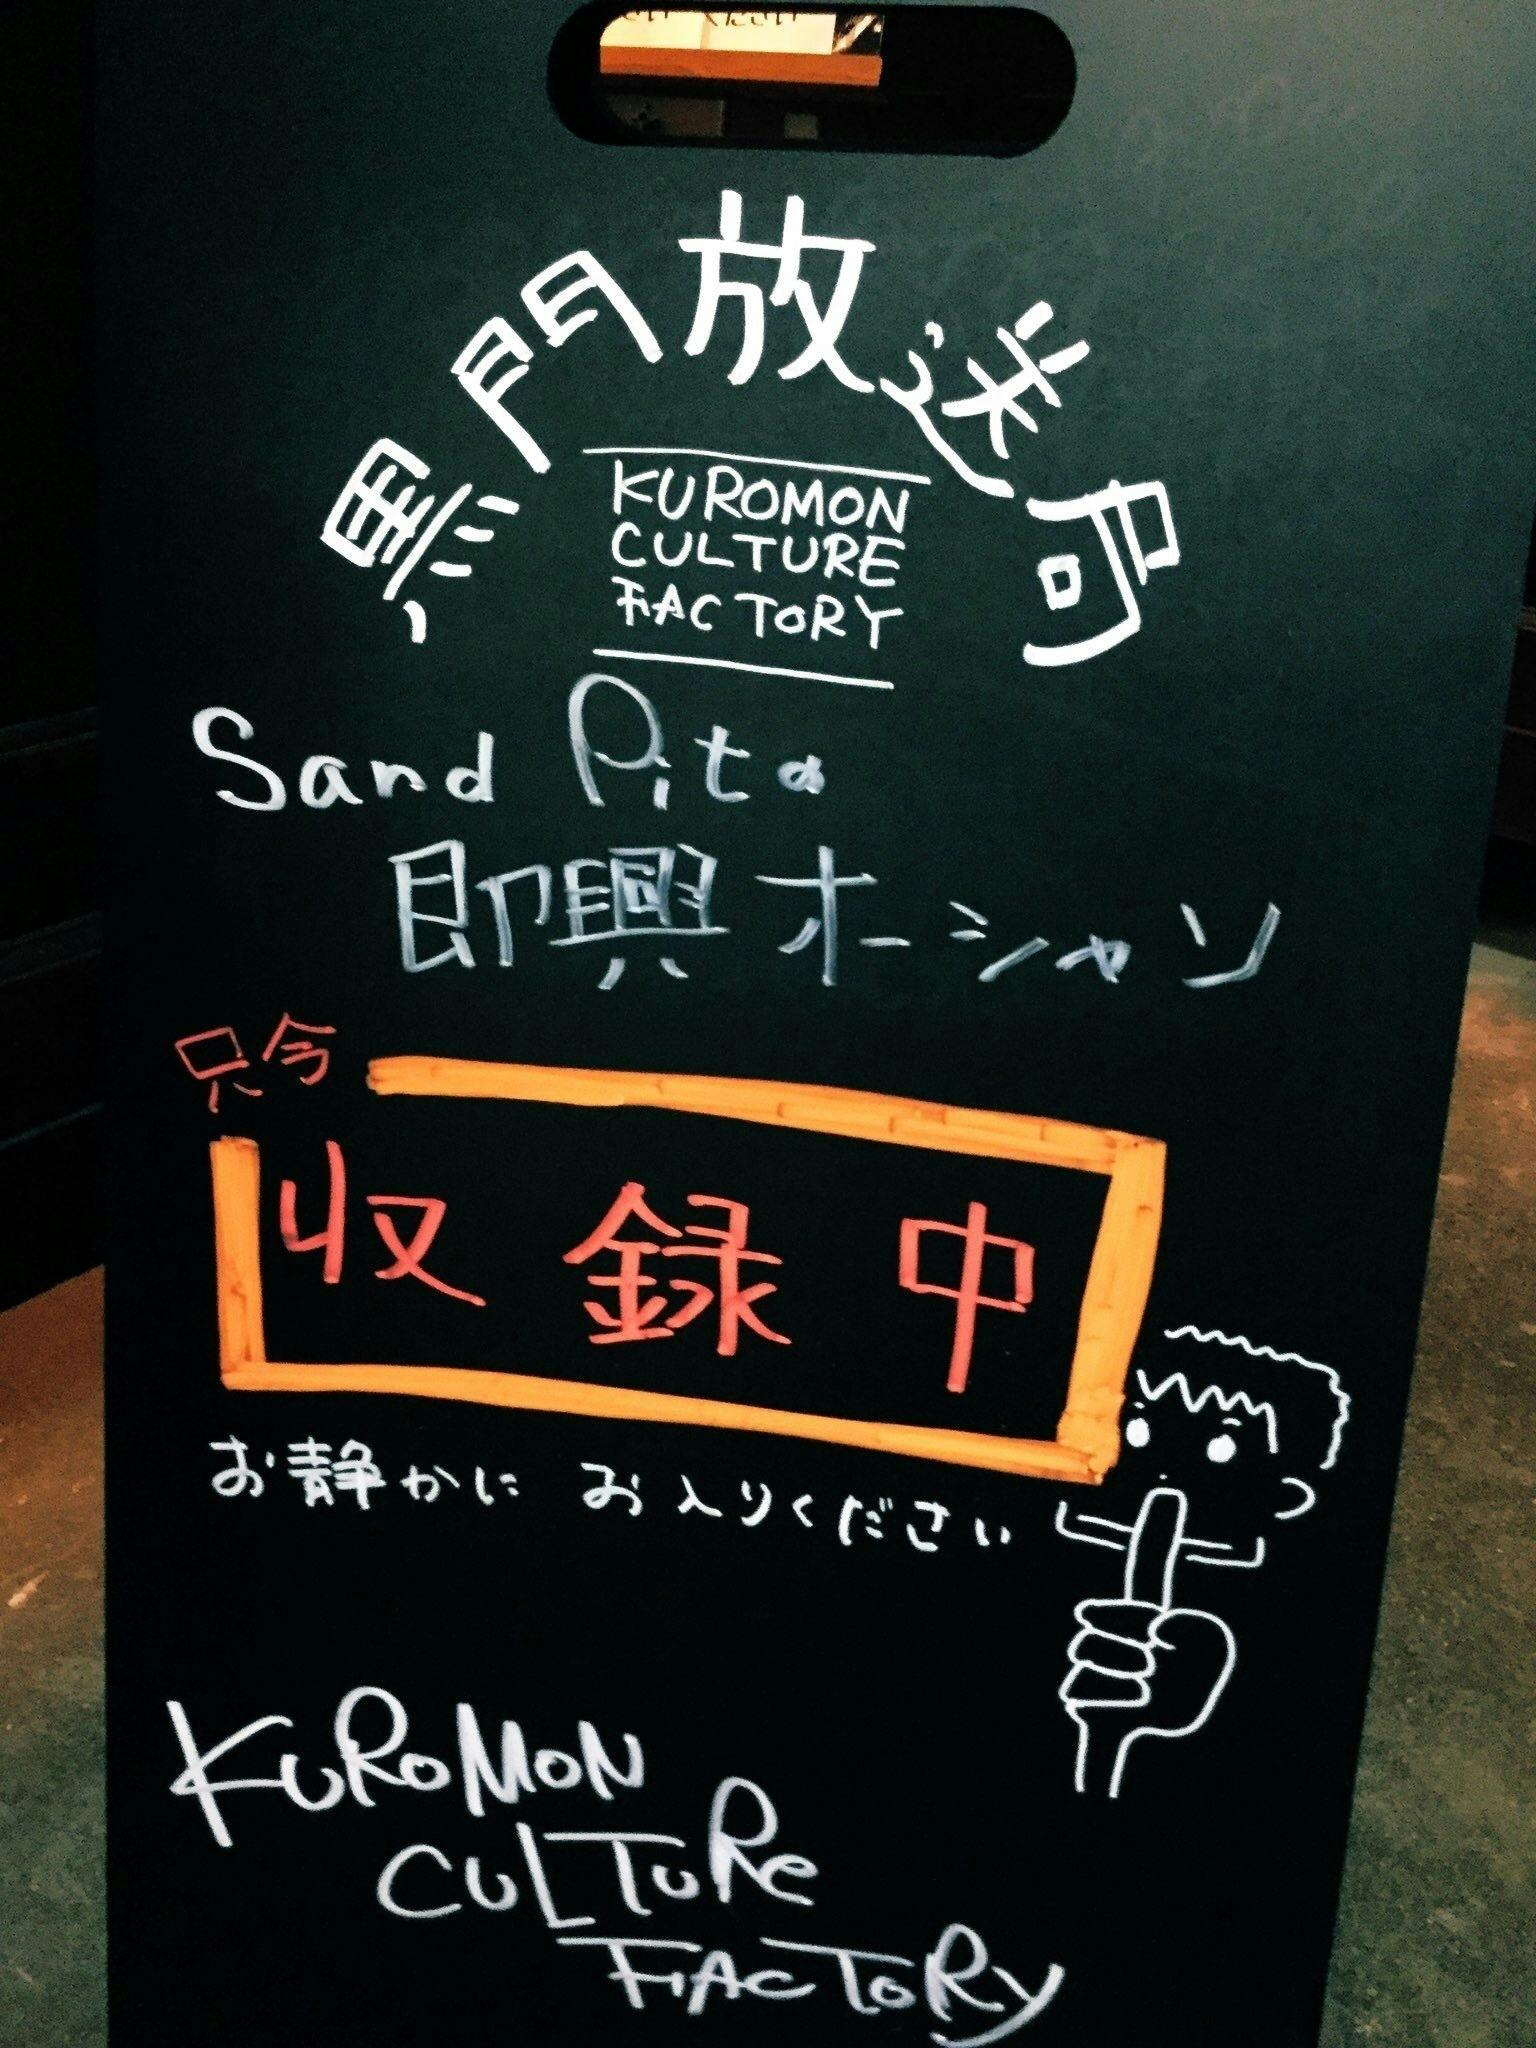 ください
黒門放送局
KUROMON
CULTURE
FACTORY
Sand Pitの
即興オーシャン
只今
収録中
お静かに お入りください
KUROMON
CULTURE
FACTORY